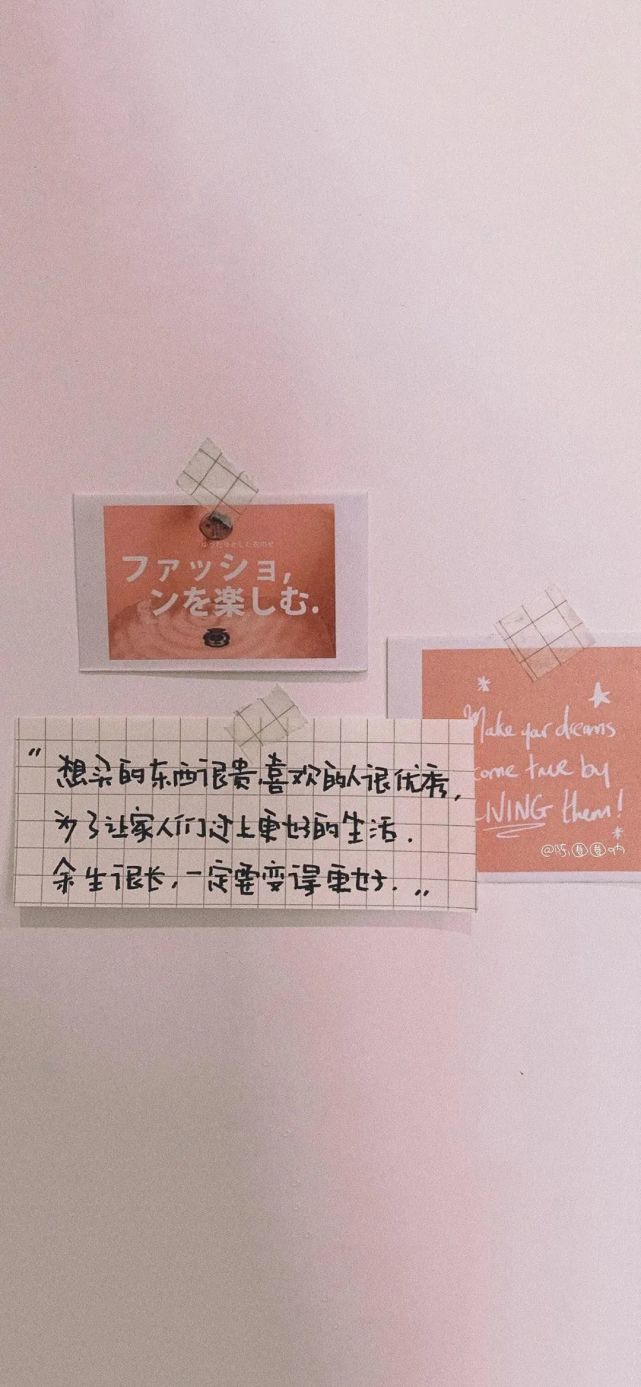 ファッショ,
ンを楽しむ.
“想买的东西很贵.喜欢的人很优秀,
为了让家人们过上更好的生活.
余生很长,一定要变得更好.”
Make your dreams
come true by
LIVING them!